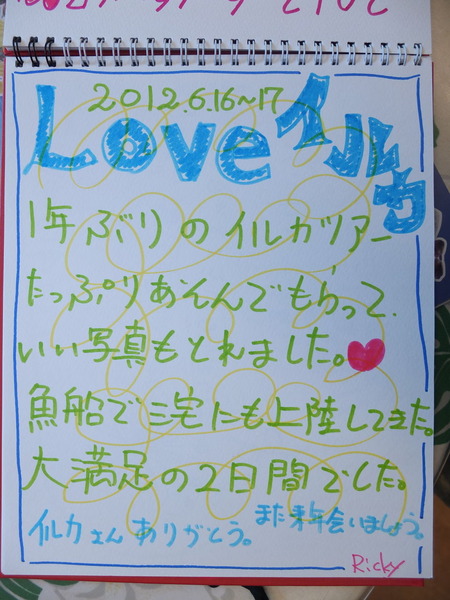 2012.6.16~17
Love イルカ
1年ぶりのイルカツアー
たっぷりあそんでもらって、
いい写真もとれました。
魚船で三宅にも上陸してきた。
大満足の2日間でした。
イルカさんありがとう。また来年会いましょう。
Ricky